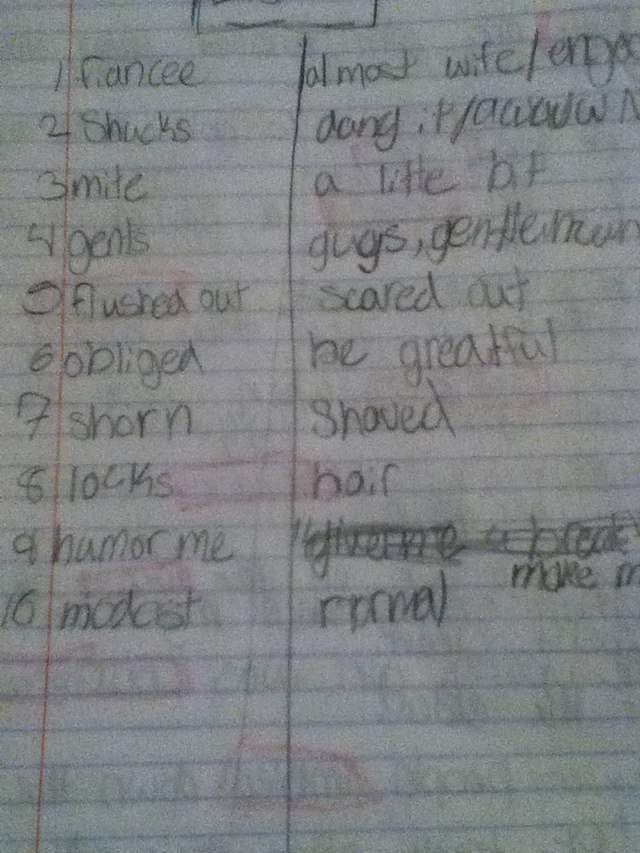 1 fiancee almost wife/engag
2 Shucks dang it/awwww
3 mite a litte bit
4 gents guys, gentleman
5 flushed out scared out
6 obliged be greatful
7 shorn shaved
8 locks hair
9 humor me give me a break
make m
10 modest normal